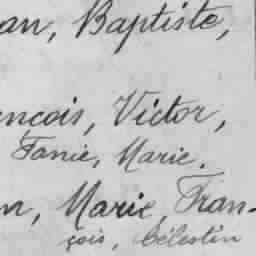 an, Baptiste,
ncois, Victor,
Fanie, Marie.
n, Marie, Fran-
çois, Célestin